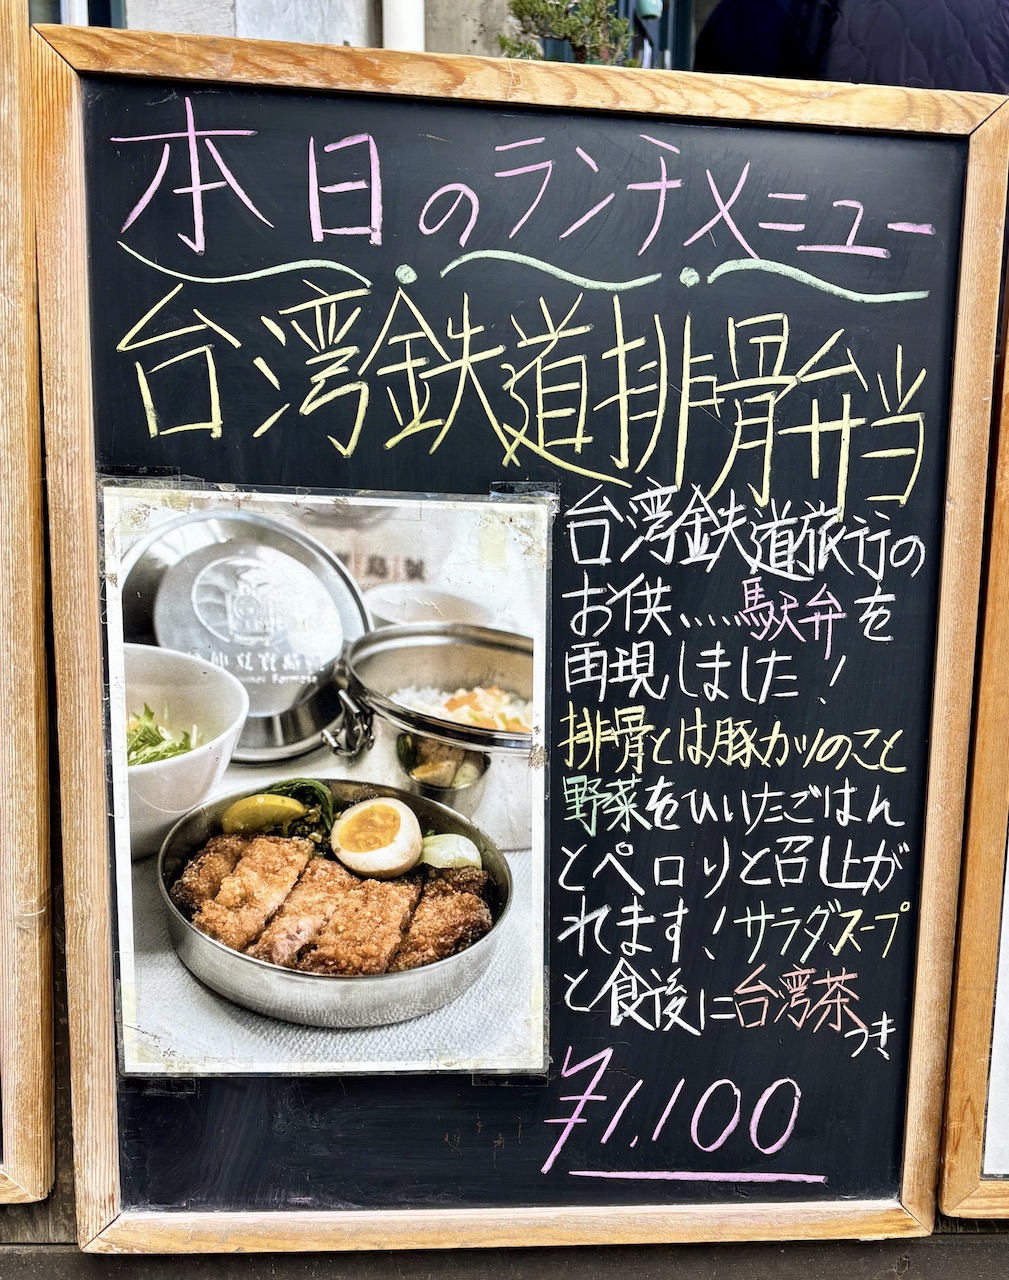 本日のランチメニュー
台湾鉄道排骨弁当
台湾鉄道旅行の
お供....駅弁を
再現しました!
排骨とは豚カツのこと
野菜をひいたごはん
とペロリと召し上が
れます!サラダスープ
と食後に台湾茶つき
¥1,100